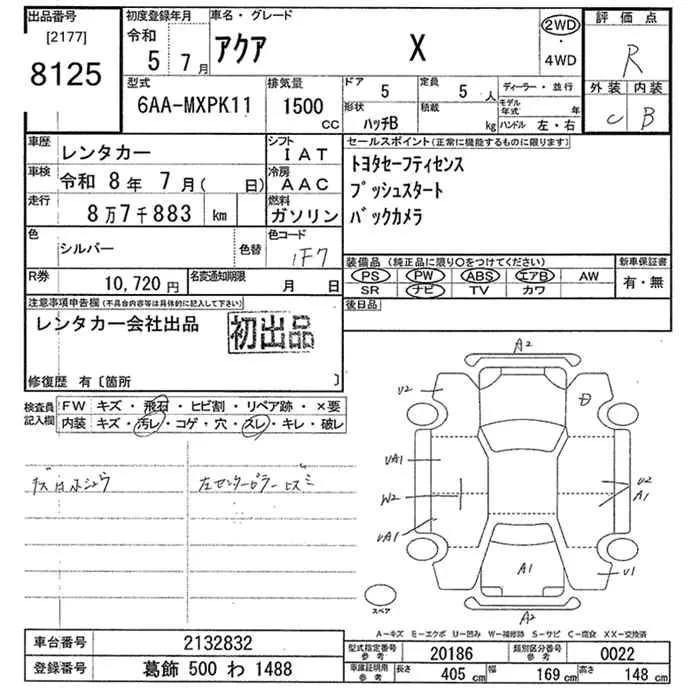 出品番号
[2177]
8125
初度登録年月
令和
5 7月
車名・グレード
アクア X
2WD
・
4WD
評価点
R
外装 内装
C B
型式
6AA-MXPK11
排気量
1500
CC
ドア 5
定員 5 人
形状 ハッチB
積載 kg
ディーラー・並行
モデル年式 年
ハンドル 左・右
車歴 レンタカー
シフト IAT
車検 令和 8年 7月( 日)
冷房 AAC
走行 8万7千883 km
燃料 ガソリン
色 シルバー
色替
色コード 1F7
R券 10,720円
名変通知期限 月 日
セールスポイント(正常に機能するものに限ります)
トヨタセーフティセンス
プッシュスタート
バックカメラ
装備品(純正品に限り○をつけてください)
PS PW ABS エアB AW
SR ナビ TV カワ
新車保証書
有・無
後日品
注意事項申告欄(不具合内容等は具体的に記入して下さい)
レンタカー会社出品
初出品
修復歴 有〔箇所 〕
検査員記入欄
FW キズ・飛石・ヒビ割・リペア跡・×要
内装 キズ・汚レ・コゲ・穴・スレ・キレ・破レ
左センターピラー
A2
U2
UA1
W2
UA1
U2
A1
U1
A1
A2
スペア
A-キズ E-エクボ U-凹み W-補修跡 S-サビ C-腐食 XX-交換済
車台番号 2132832
登録番号 葛飾 500 わ 1488
型式指定番号 参考 20186
類別区分番号 参考 0022
車庫証明用 参考 長さ 405 cm 幅 169 cm 高さ 148 cm